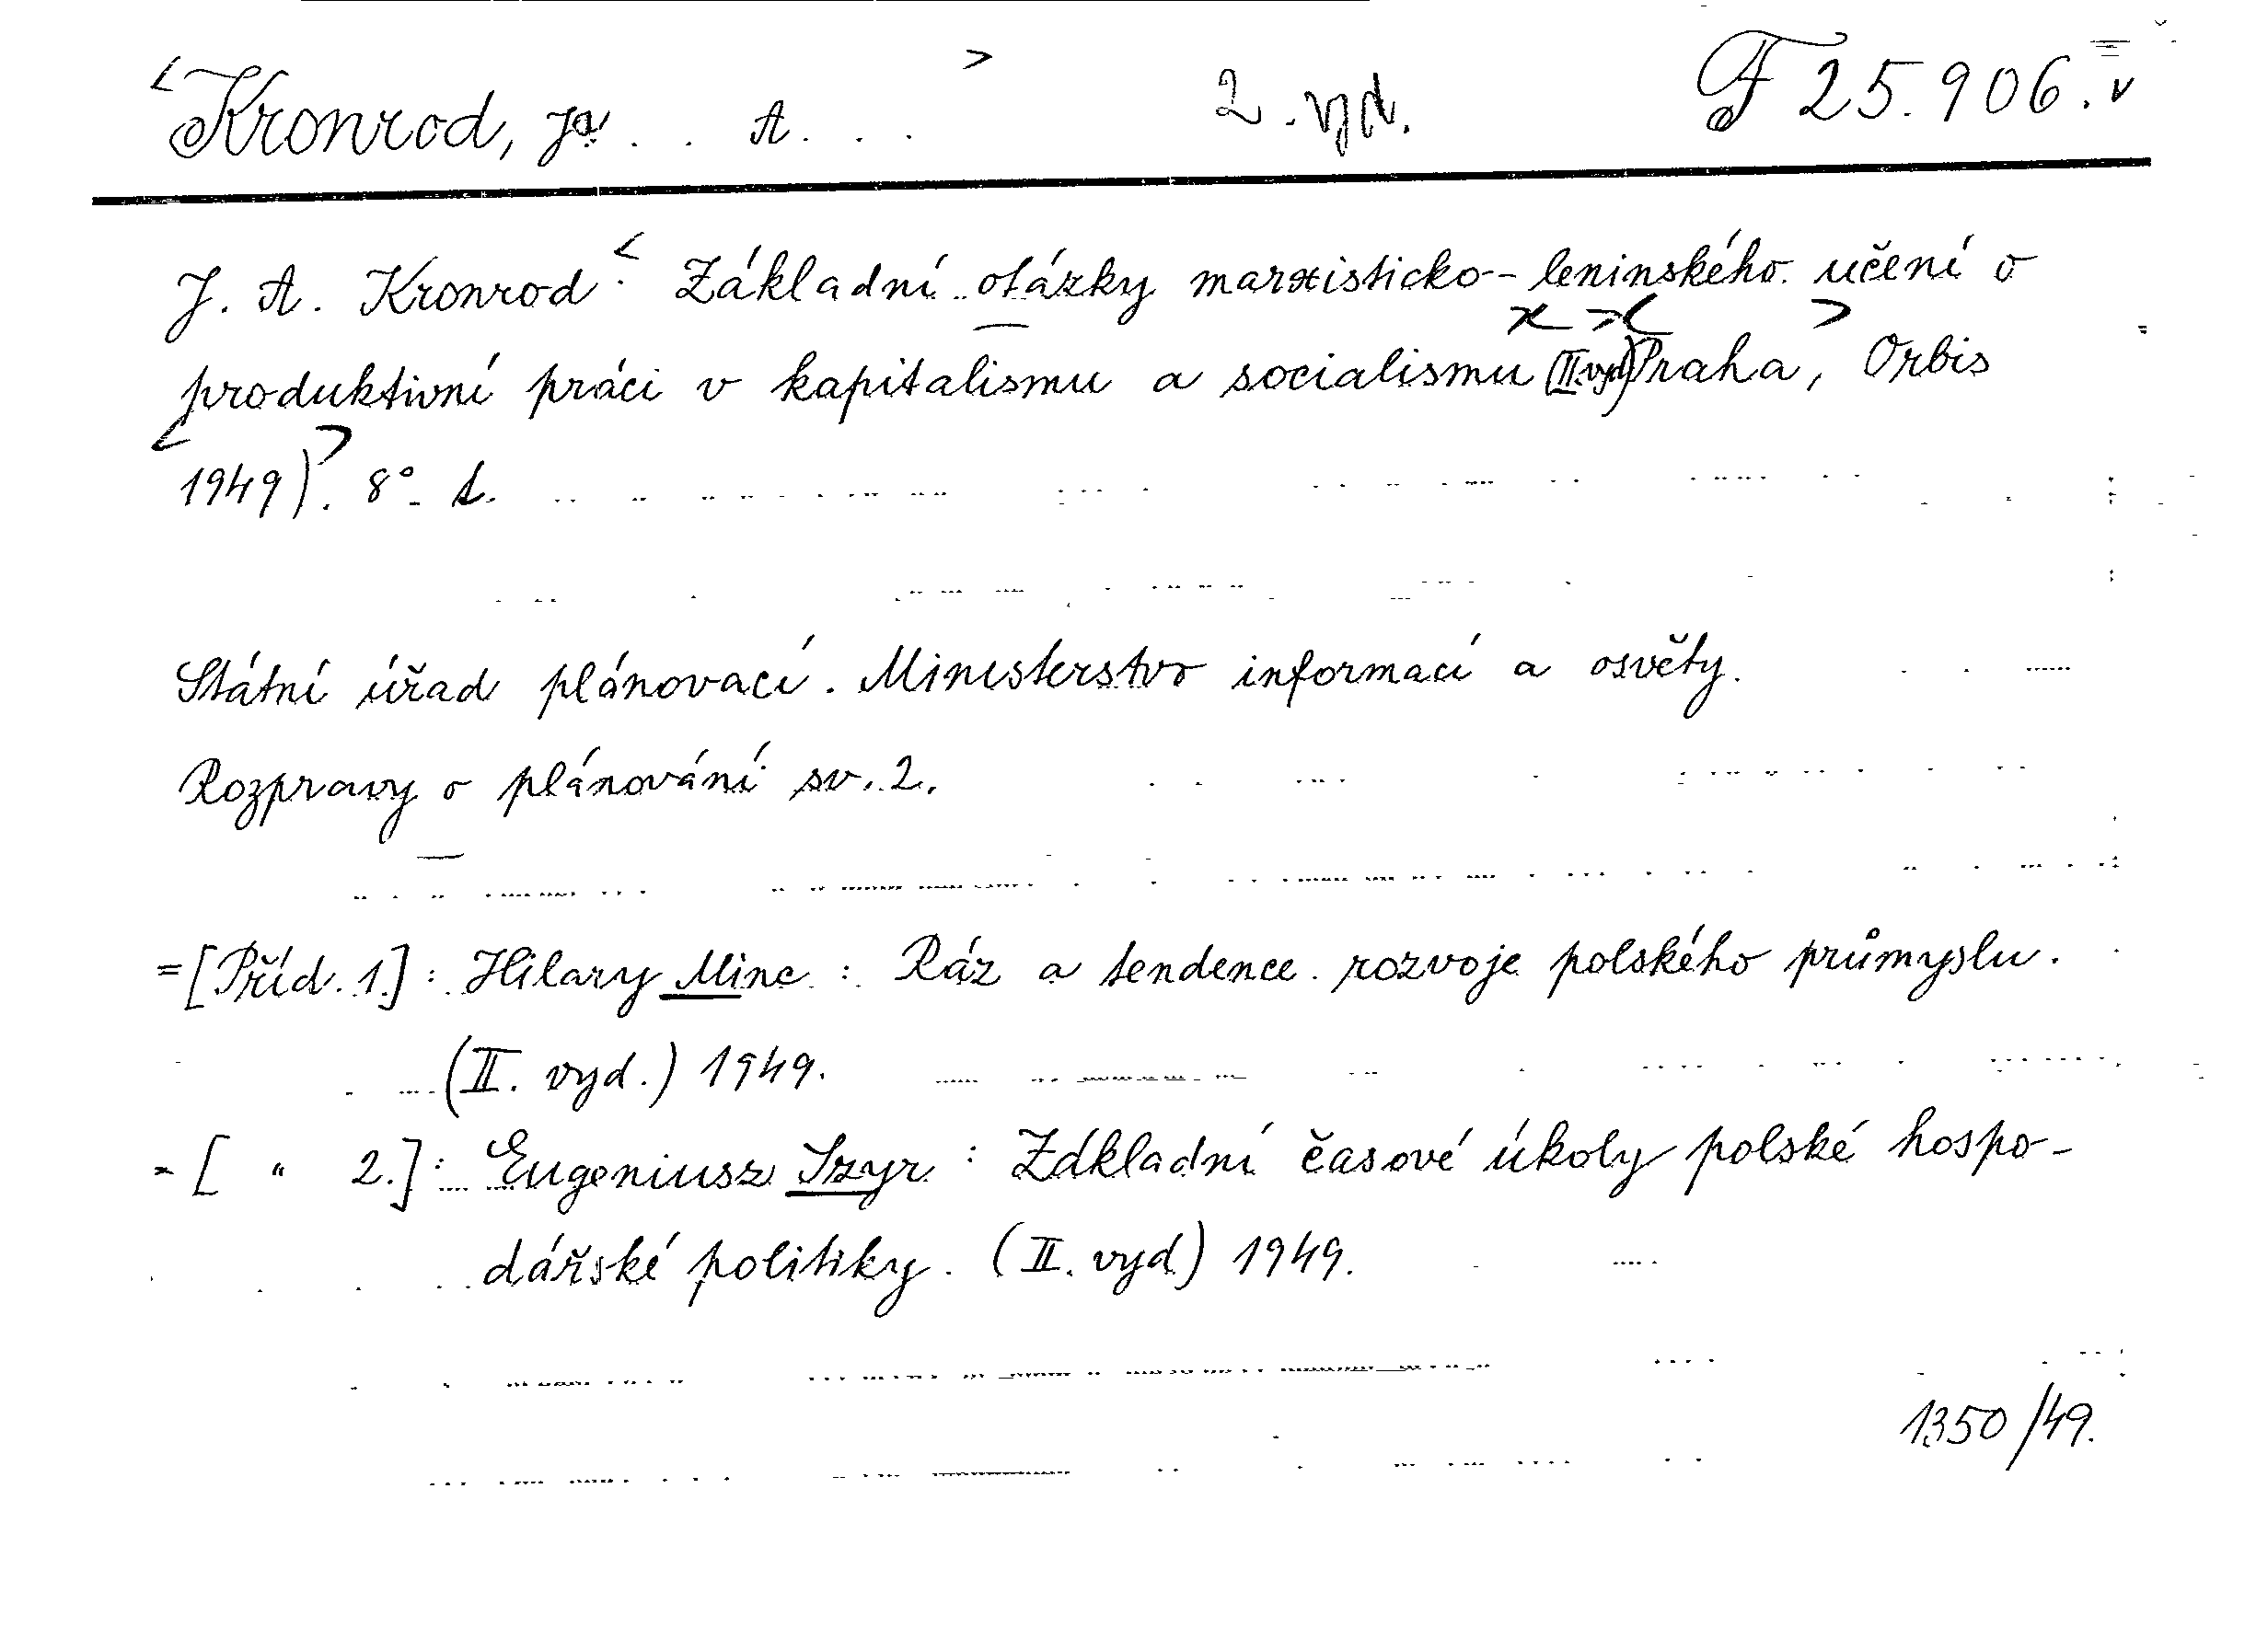 <Kronrod, Ja. . . A. . . .> 2. vyd. F 25.906.
J. A. Kronrod: <Základní otázky marxisticko-leninského učení o
produktivní práci v kapitalismu a socialismu (II. vyd) Praha>, Orbis
<1949)>. 8°. s.
Státní úřad plánovací. Ministerstvo informací a osvěty.
Rozpravy o plánování sv. 2.
= [Příd. 1.]: Hilary Minc: Ráz a tendence rozvoje polského průmyslu.
(II. vyd.) 1949.
= [ " 2.]: Eugeniusz Szyr: Základní časové úkoly polské hospo-
dářské politiky. (II. vyd) 1949.
1350/49.